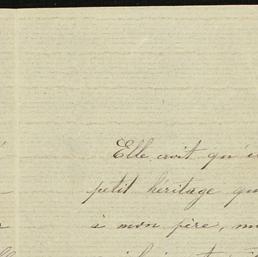 Elle croit qu'e
petit héritage qu
à mon père, m